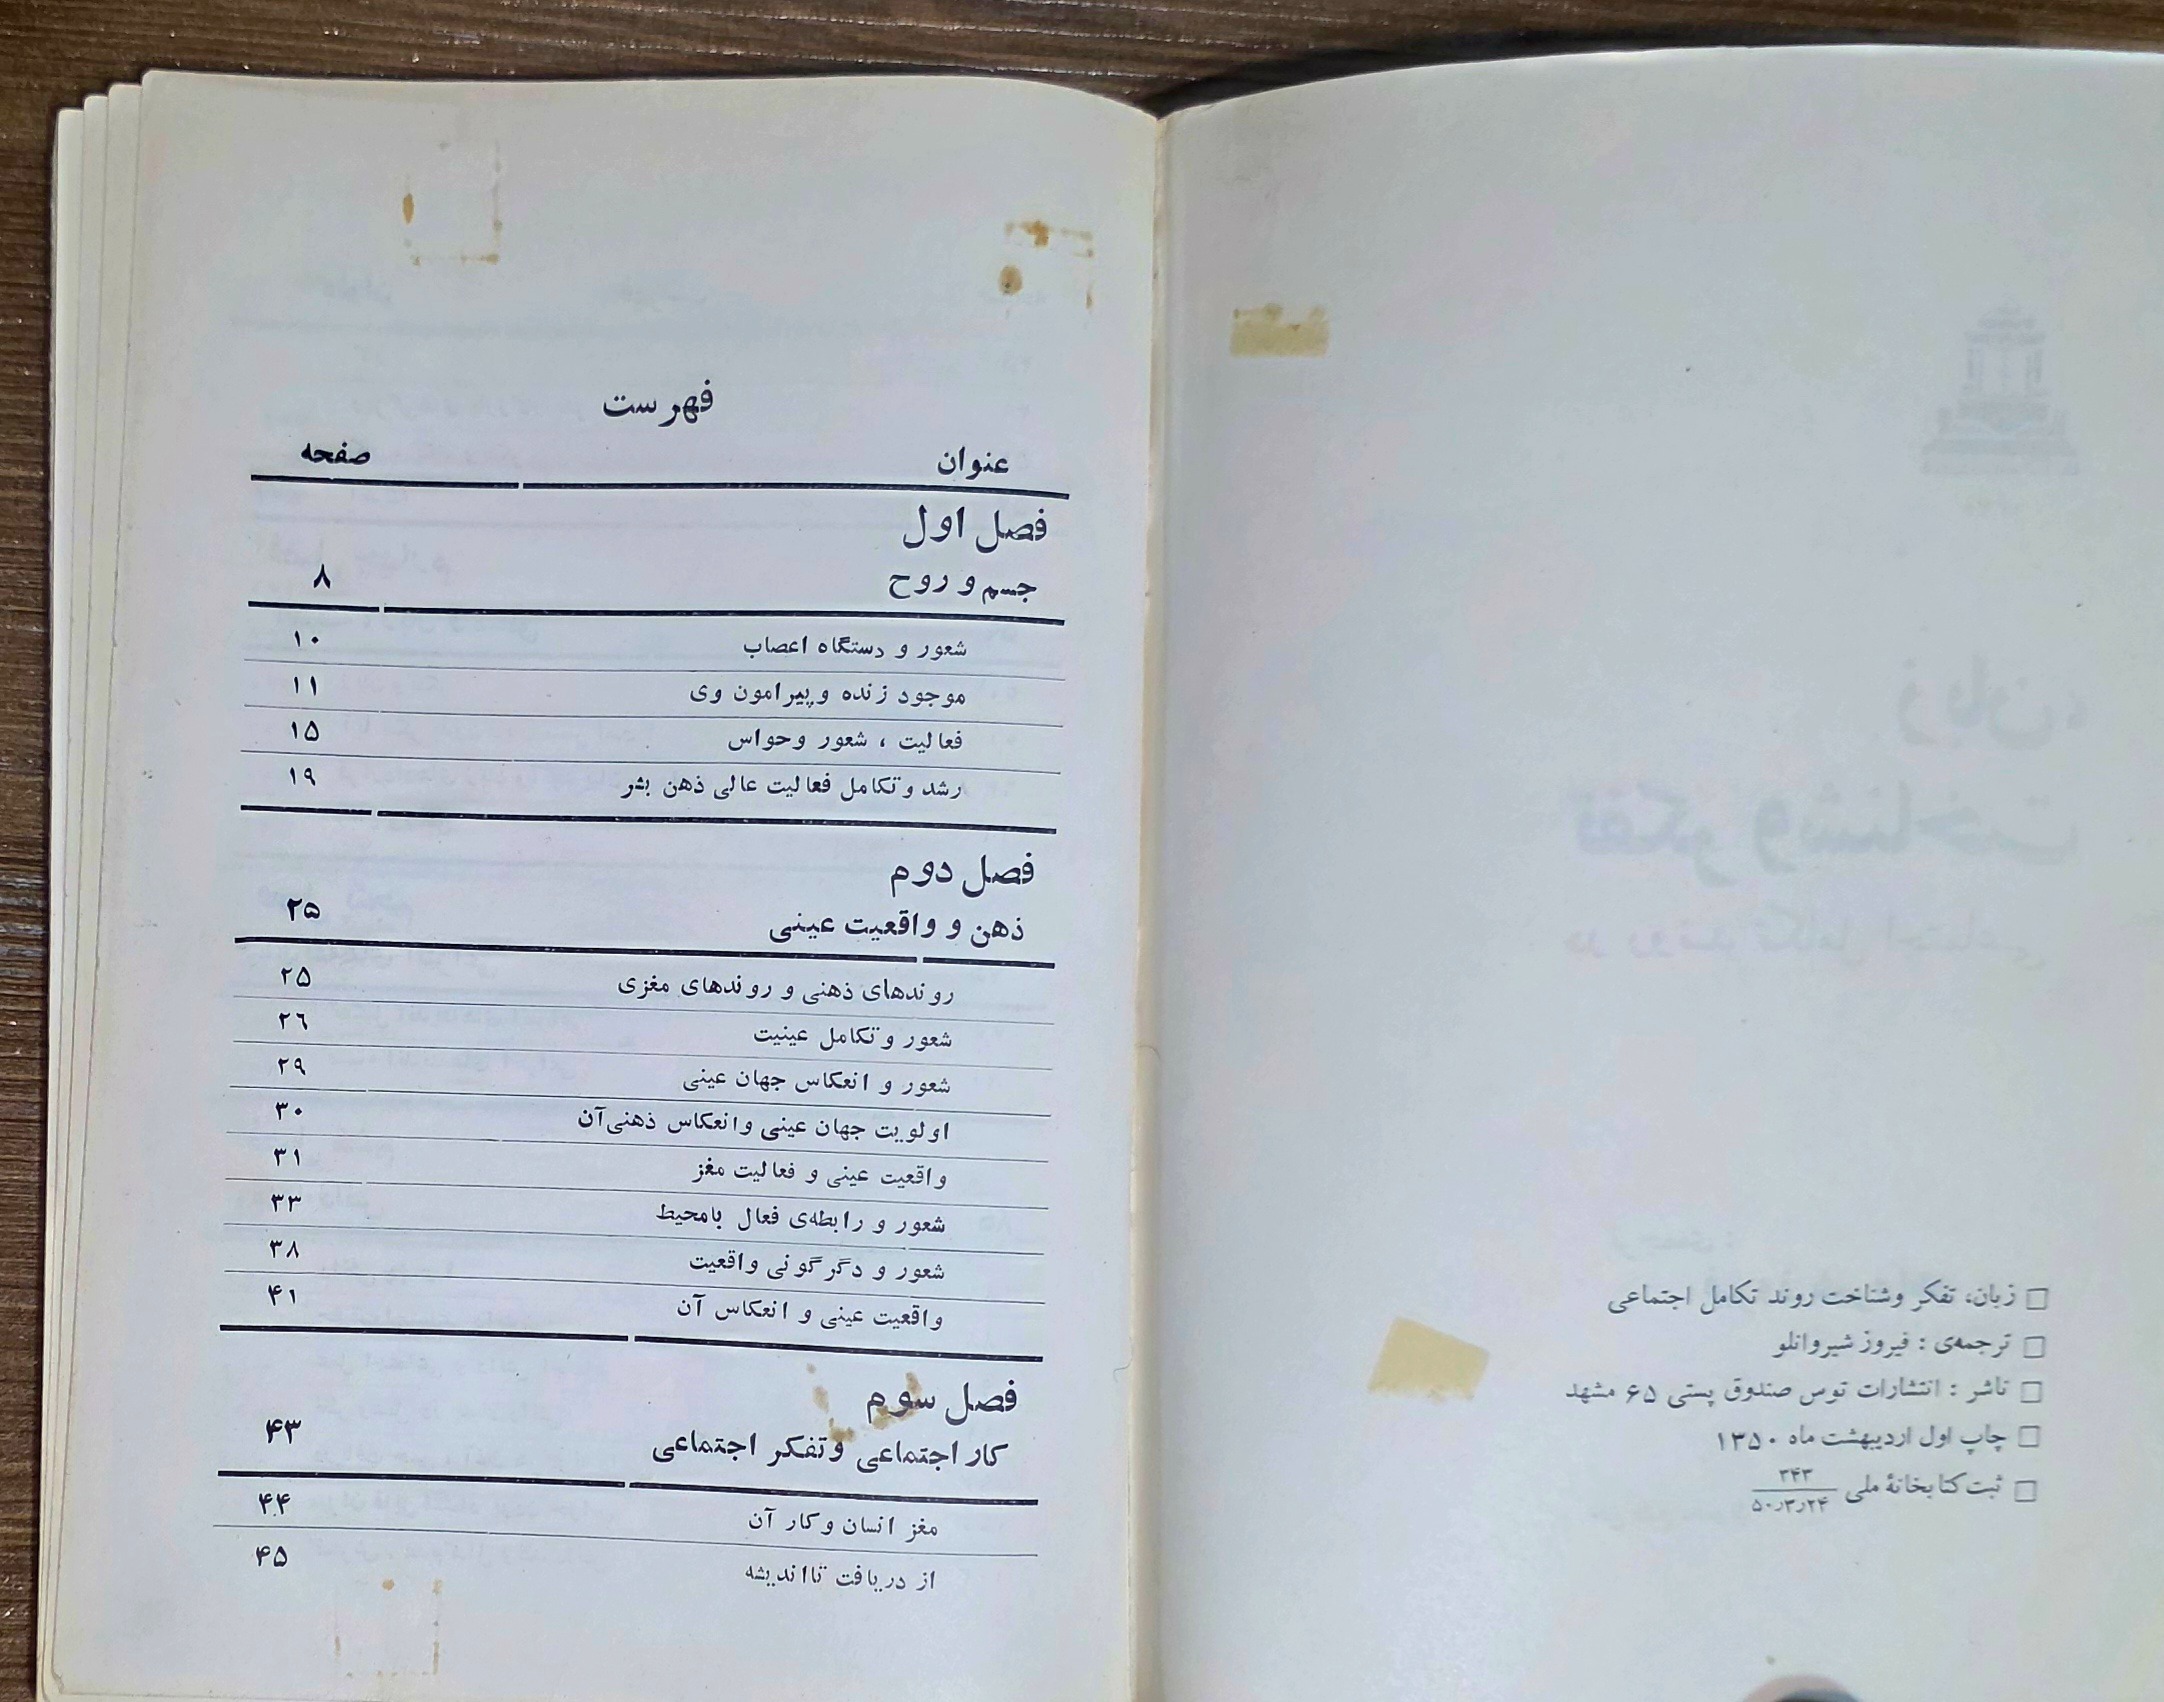 زبان، تفکر وشناخت روند تکامل اجتماعی
ترجمه‌ی : فیروز شیروانلو
ناشر : انتشارات توس صندوق پستی ۶۵ مشهد
چاپ اول اردیبهشت ماه ۱۳۵۰
ثبت کتابخانهٔ ملی ۳۴۳
۵۰٫۳٫۲۴
فهرست
عنوان صفحه
فصل اول
جسم و روح ۸
شعور و دستگاه اعصاب ۱۰
موجود زنده و پیرامون وی ۱۱
فعالیت ، شعور وحواس ۱۵
رشد و تکامل فعالیت عالی ذهن بشر ۱۹
فصل دوم
ذهن و واقعیت عینی ۲۵
روندهای ذهنی و روندهای مغزی ۲۵
شعور و تکامل عینیت ۲۶
شعور و انعکاس جهان عینی ۲۹
اولویت جهان عینی وانعکاس ذهنی‌آن ۳۰
واقعیت عینی و فعالیت مغز ۳۱
شعور و رابطه‌ی فعال بامحیط ۳۳
شعور و دگرگونی واقعیت ۳۸
واقعیت عینی و انعکاس آن ۴۱
فصل سوم
کار اجتماعی و تفکر اجتماعی ۴۳
مغز انسان و کار آن ۴۴
از دریافت تااندیشه ۴۵